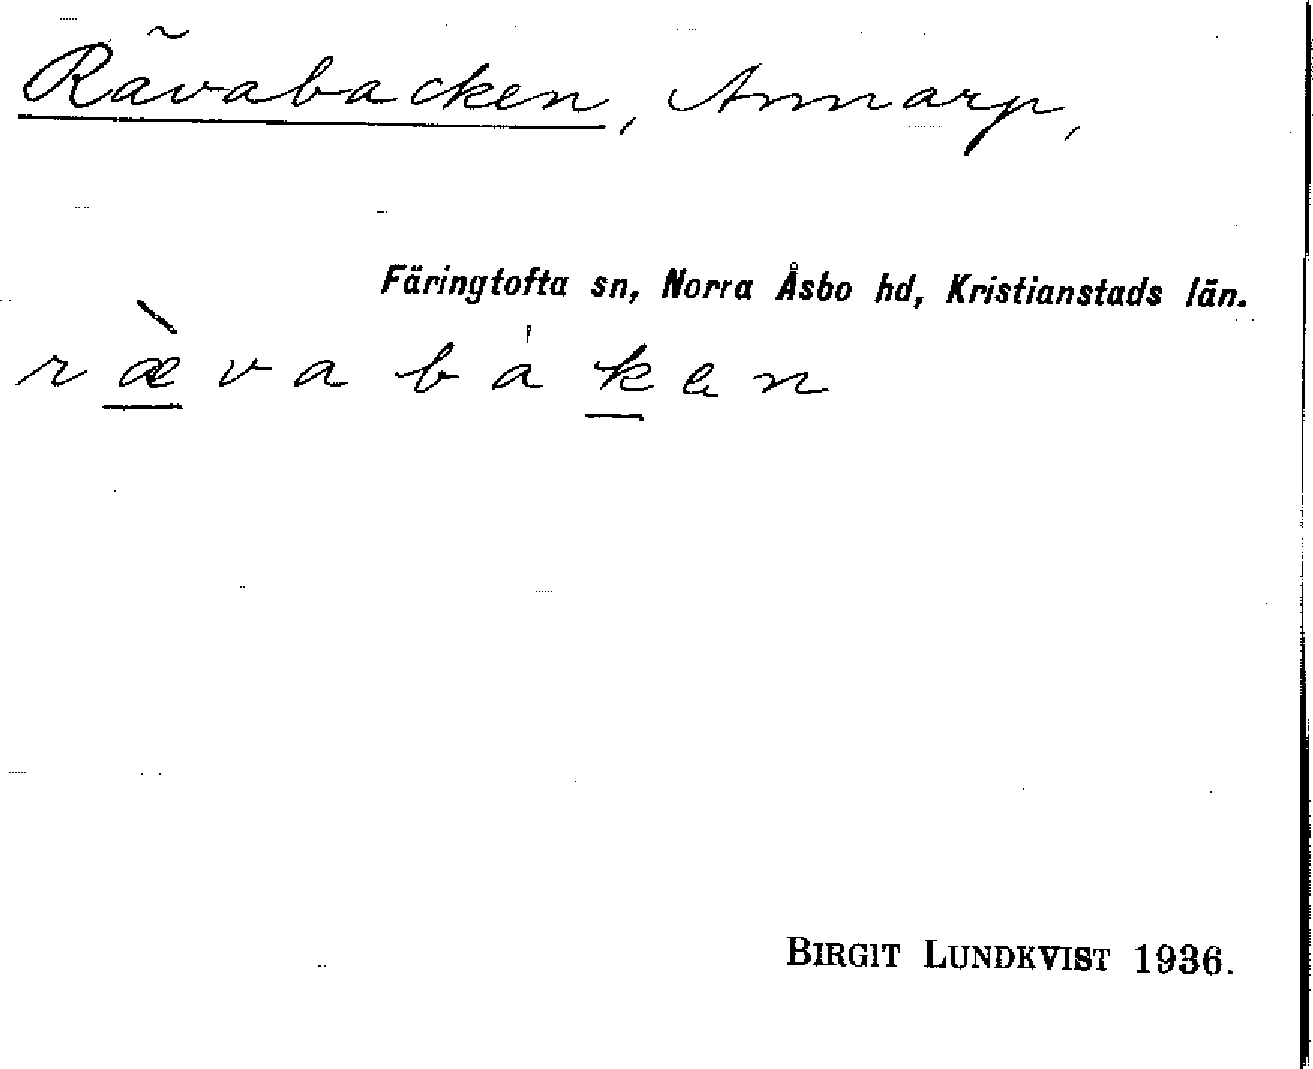 Rävabacken, Annarp,
Färingtofta sn, Norra Åsbo hd, Kristianstads län.
r æ̀ v a b á k e n
BIRGIT LUNDKVIST 1936.